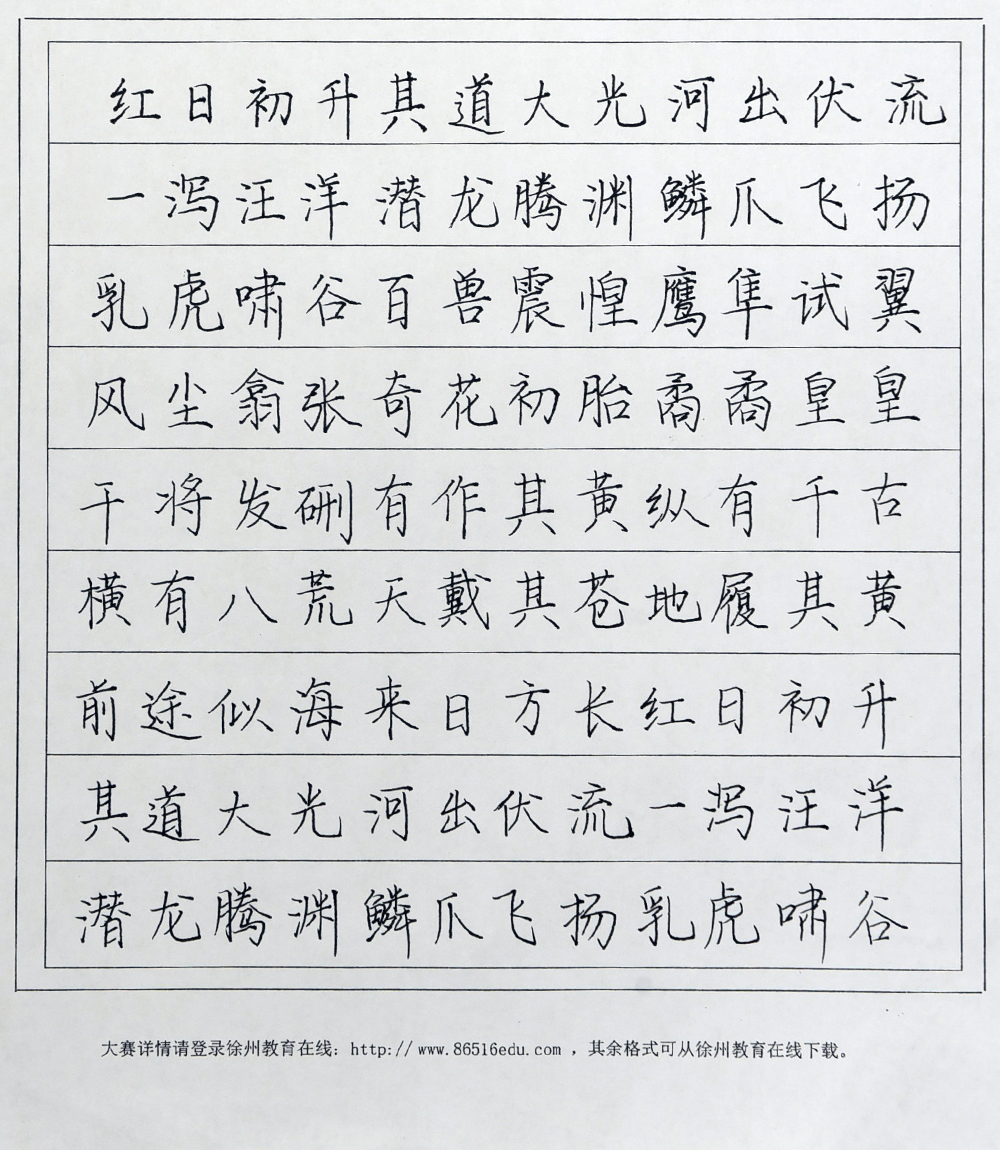 红日初升其道大光河出伏流
一泻汪洋潜龙腾渊鳞爪飞扬
乳虎啸谷百兽震惶鹰隼试翼
风尘翕张奇花初胎矞矞皇皇
干将发硎有作其黄纵有千古
横有八荒天戴其苍地履其黄
前途似海来日方长红日初升
其道大光河出伏流一泻汪洋
潜龙腾渊鳞爪飞扬乳虎啸谷
大赛详情请登录徐州教育在线：http://www.86516edu.com ，其余格式可从徐州教育在线下载。